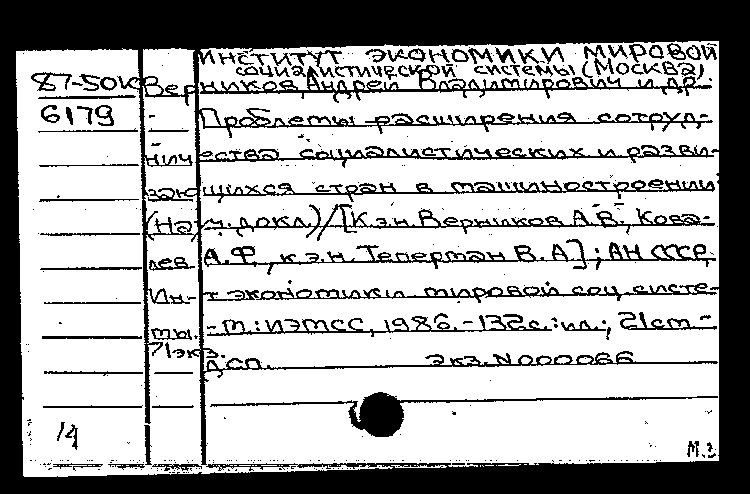 ИНСТИТУТ ЭКОНОМИКИ МИРОВОЙ
социалистической системы (Москва)
87-50К Верников, Андрей Владимирович и др.
6179 - Проблемы расширения сотруд-
ничества социалистических и разви-
вающихся стран в машиностроении
(Науч. докл.)/[К.э.н. Верников А.В., Кова-
лев А.Ф., к.э.н. Теперман В.А]; АН СССР,
Ин-т экономики мировой соц. систе-
мы. - М.: ИЭМСС, 1986. - 132с.: ил.; 21см. -
71экз.
ДСП. Экз. N000066
14
М.З